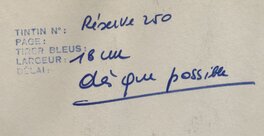 TINTIN N°: Réserve 250
PAGE:
TIRER BLEUS:
LARGEUR: 18 cm
DÉLAI:
dès que possible